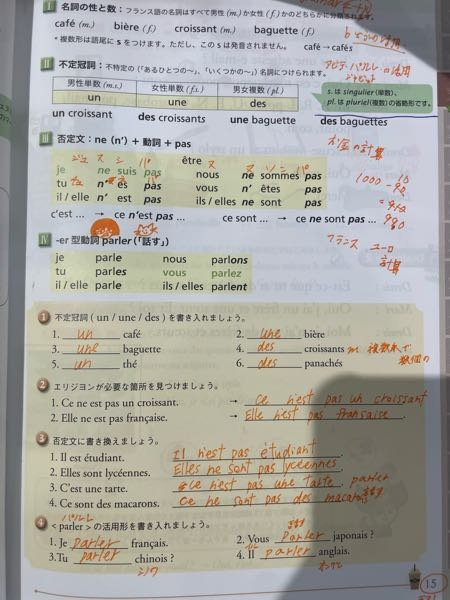 I 名詞の性と数：フランス語の名詞はすべて男性 (m.) か女性 (f.) かのどちらかに分類されます。
café (m.) bière (f.) croissant (m.) baguette (f.)
＊複数形は語尾に s をつけます。ただし、この s は発音されません。 café → cafés
の活用
II 不定冠詞：不特定の（「あるひとつの〜」、「いくつかの〜」）名詞につけられます。
の活用
男性単数 (m.s.) 女性単数 (f.s.) 男女複数 (pl.)
un une des
s. は singulier (単数)、
pl. は pluriel (複数) の省略形です。
un croissant des croissants une baguette des baguettes
III 否定文：ne (n') + 動詞 + pas
お金の計算
être
je ne suis pas nous ne sommes pas
tu n' es pas vous n' êtes pas
il / elle n' est pas ils / elles ne sont pas
c'est ... → ce n'est pas ... ce sont ... → ce ne sont pas ...
フランス ユーロ
計算
IV -er 型動詞 parler (「話す」)
je parle nous parlons
tu parles vous parlez
il / elle parle ils / elles parlent
1 不定冠詞 ( un / une / des ) を書き入れましょう。
1. un café 2. une bière
3. une baguette 4. des croissants m 複数本で
5. un thé 6. des panachés
数個の
2 エリジヨンが必要な箇所を見つけましょう。
1. Ce ne est pas un croissant. → ce n'est pas un croissant
2. Elle ne est pas française. → Elle n'est pas fransaise.
3 否定文に書き換えましょう。
1. Il est étudiant. Il n'est pas étudiant
2. Elles sont lycéennes. Elles ne sont pas lycéennes
3. C'est une tarte. ce n'est pas une tarte. parler
4. Ce sont des macarons. ce ne sont pas des macarons
4 < parler > の活用形を書き入れましょう。
パルレ
1. Je parler français. 2. Vous parler japonais ?
3.Tu parler chinois ? 4. Il parler anglais.
シノワ
15